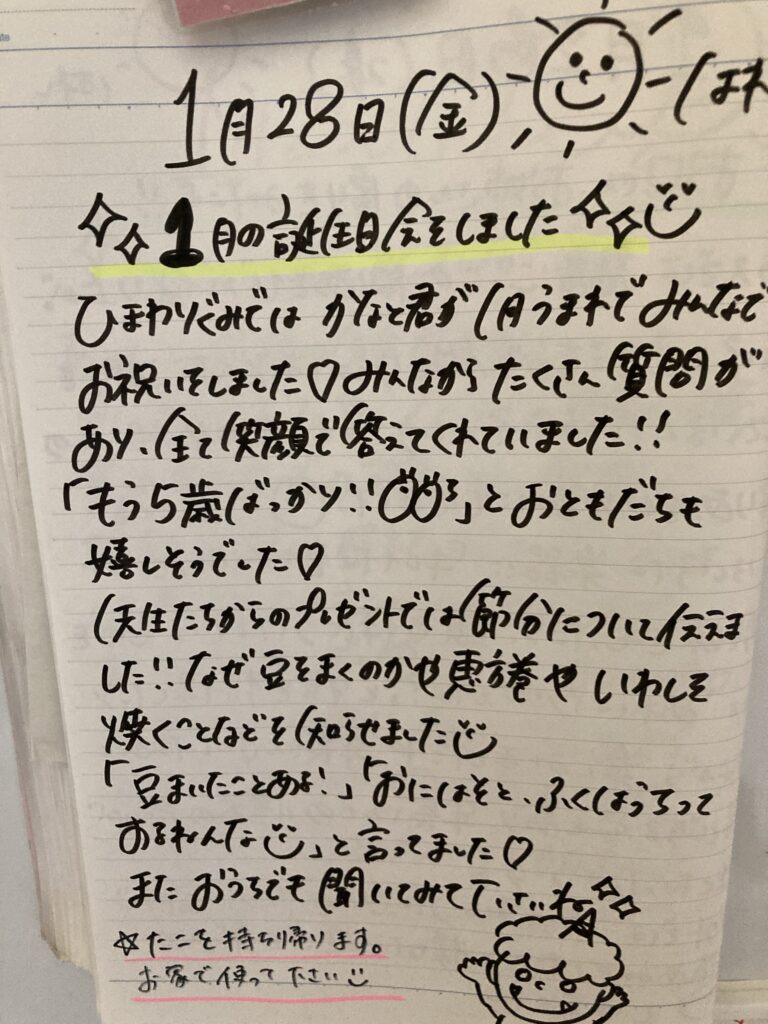 1月28日(金)
1月の誕生日会をしました
ひまわりぐみでは かなと君が1月うまれでみんなで
お祝いをしました♡みんなから たくさん質問が
あり、全て笑顔で答えてくれていました!!
「もう5歳ばっかり!!」とおともだちも
嬉しそうでした♡
先生たちからのプレゼントでは節分について伝えま
した!!なぜ豆をまくのかや恵方巻や いわしを
焼くことなどを知らせました
「豆まいたことあるよ!」「おにはそと、ふくはうちって
するねんな」と言ってました♡
また おうちでも聞いてみて下さいね
☆たこを持ち帰ります。
お家で使って下さい